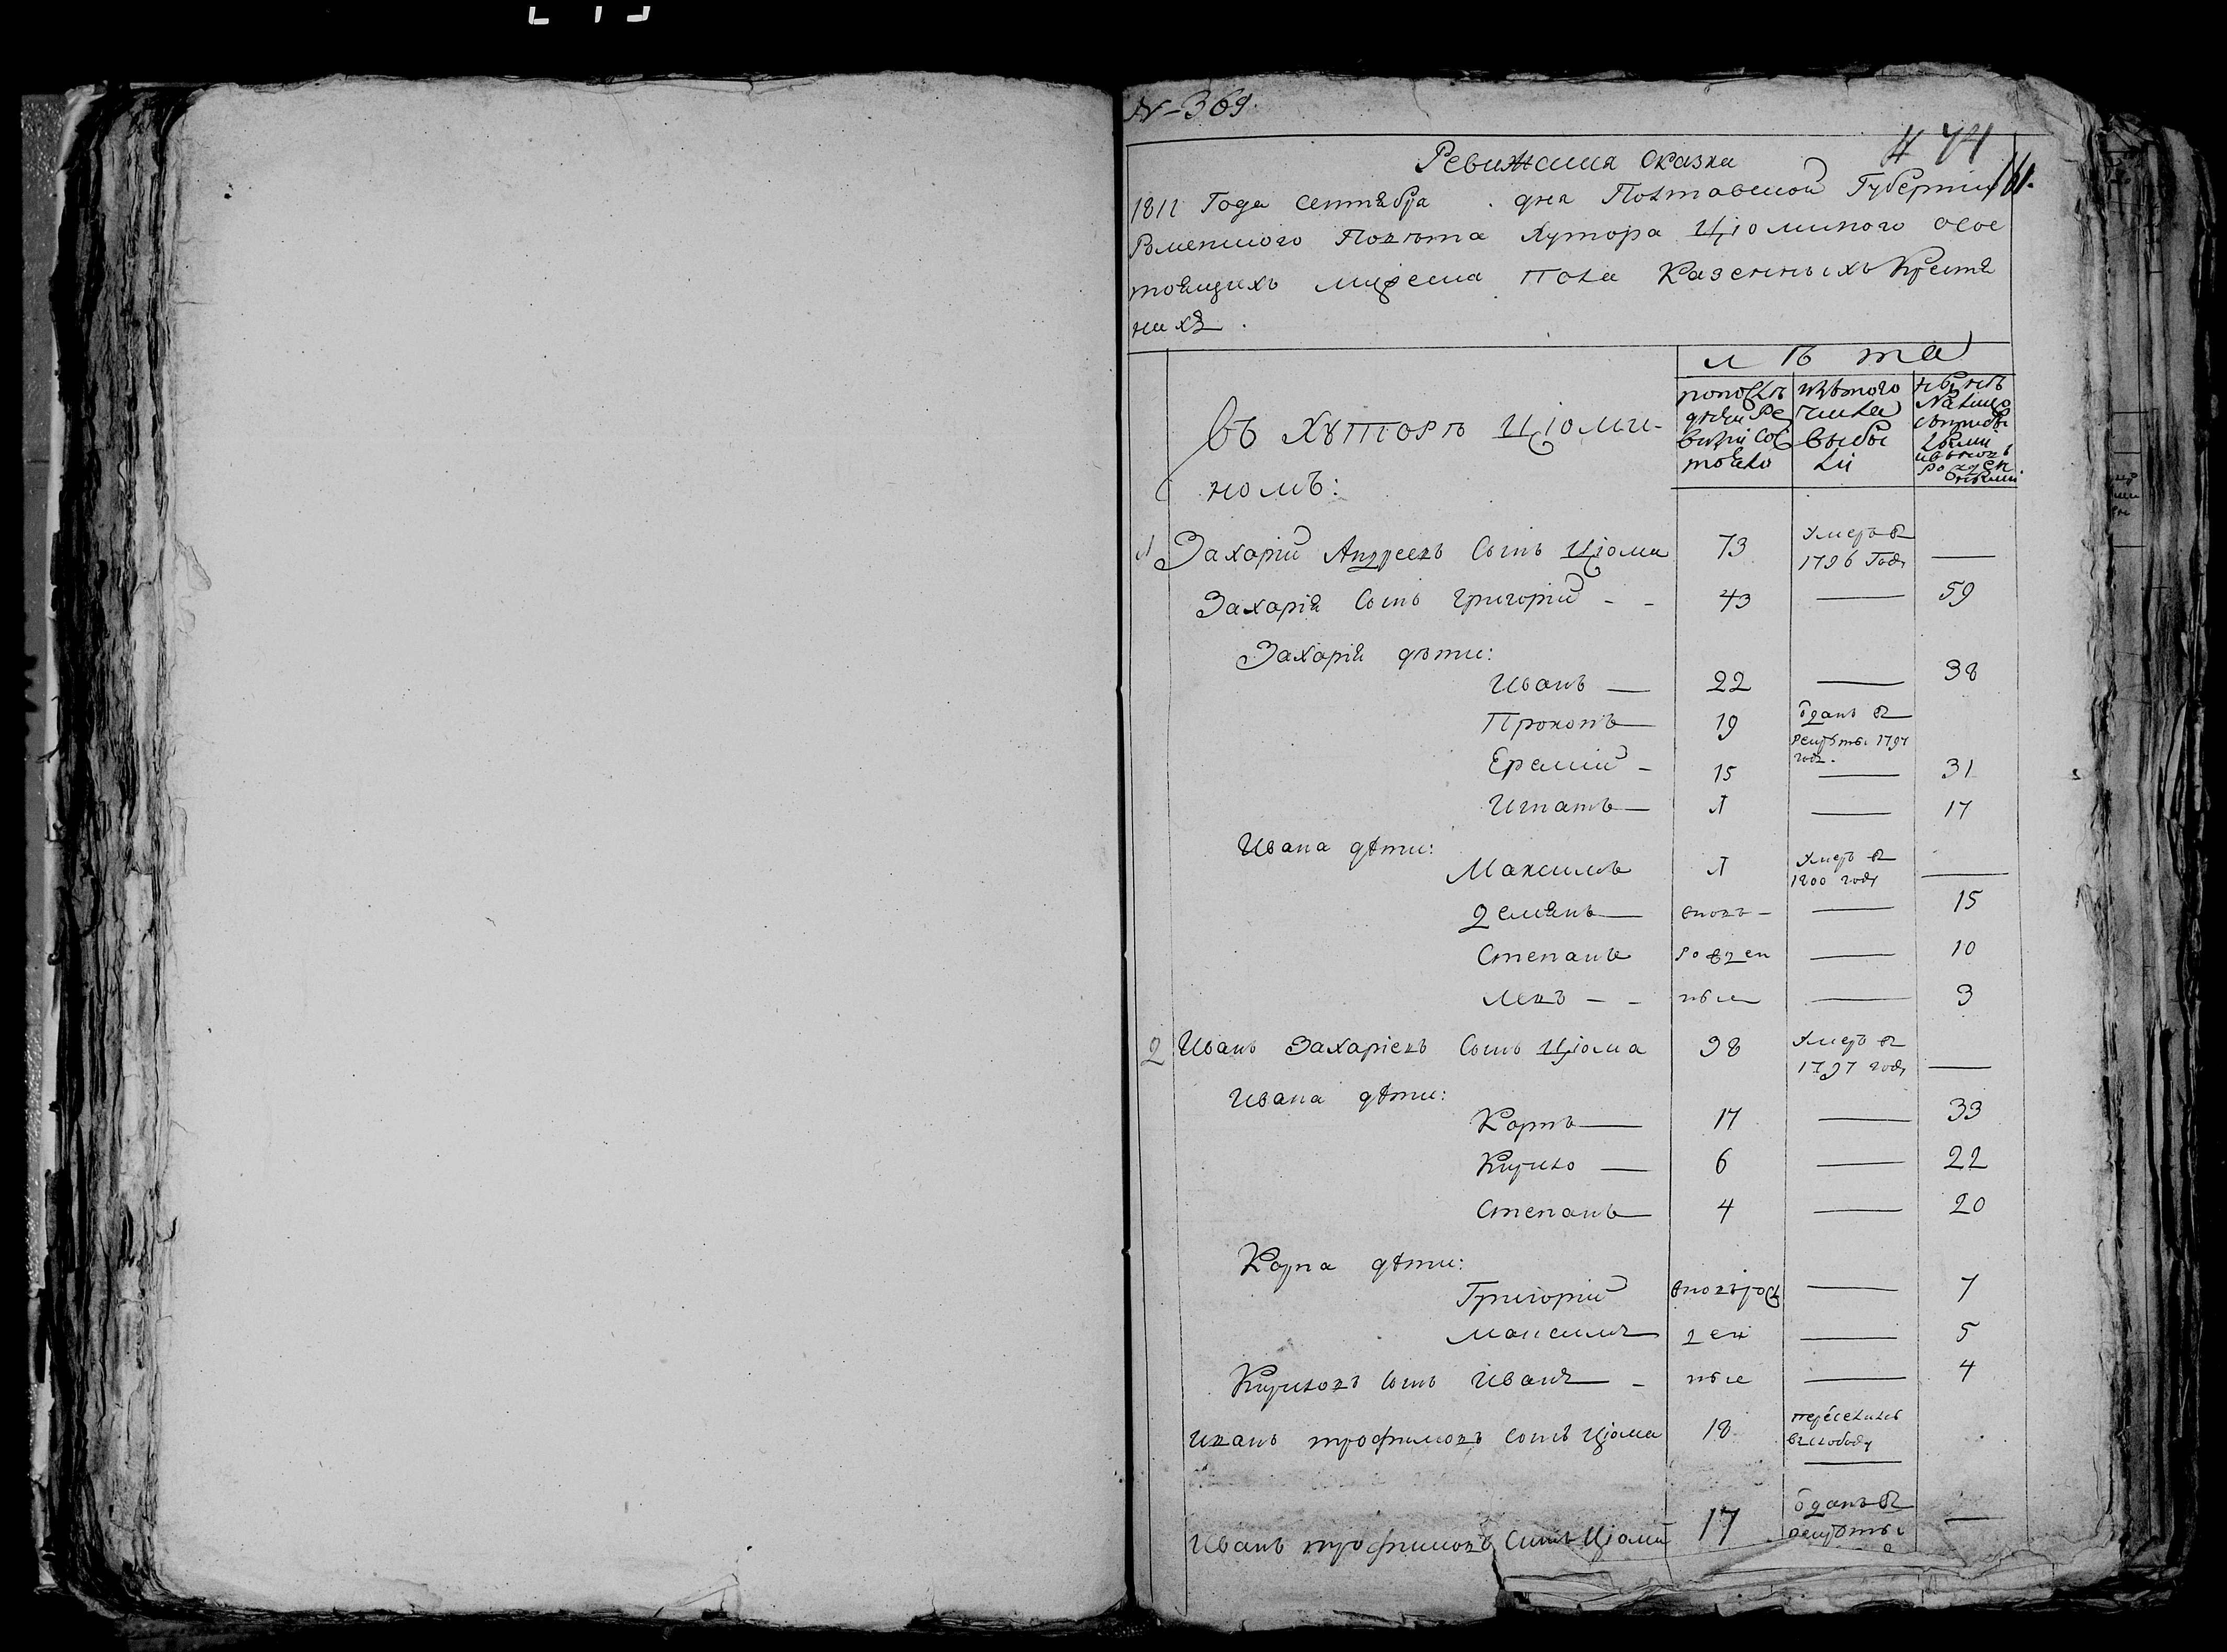 N-369.
474
161.
Ревижская сказка
1811 Года сентября дня Полтавской Губернии
Роменского Повѣта Хутора Цюминого осос
тоящихъ мужеска пола Казенныхъ Крестя
нахъ.
лѣта
по послѣ
дней Ре
визіи сос
тояло
изъ того
числа
выбы
ли
нынѣ
на лицо
въ хуторѣ Цюми-
номъ:
1 Захарій Андреевъ Сынъ Цюма 73 Умеръ в
1796 Году —
Захарія Сынъ Григорий - - 43 — 59
Захарія дѣти:
Иванъ — 22 — 38
Прокопъ — 19 ѿданъ в
рекруты 1797
годъ.
Еремий - 15 — 31
Игнатъ — 1 — 17
Ивана дѣти:
Максимъ 1 Умеръ в
1800 году —
Демянъ — вновь - — 15
Степанъ рожден — 10
Левъ - - ные — 3
2 Иванъ Захаріевъ Сынъ Цюма 38 Умеръ в
1797 году —
Ивана дѣти:
Карпъ — 17 — 33
Кирило — 6 — 22
Степанъ — 4 — 20
Карпа дѣти:
Григорий вновь рож — 7
Максимъ ден — 5
Кириловъ сынъ Иванъ - ные — 4
Иванъ трофимовъ сынъ Цюма 18 переселился
въ слободу —
Иванъ трофимовъ Сынъ Цюма 17 ѿданъ в
рекруты —